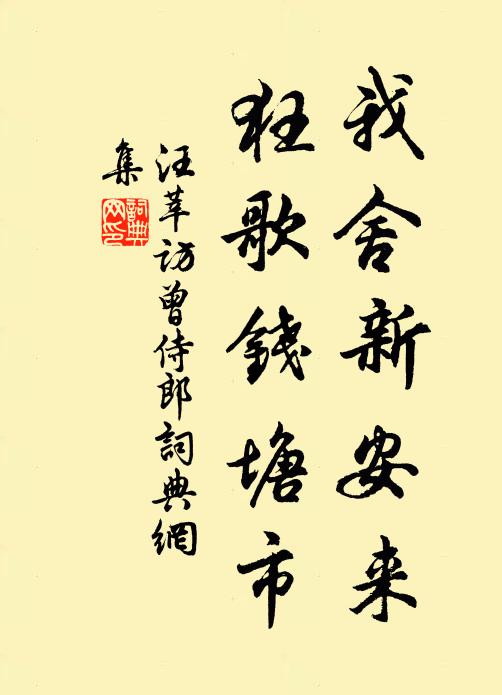 我舍新安来
狂歌錢塘市
汪莘訪曾侍郎詞典網
集
詞典
网印